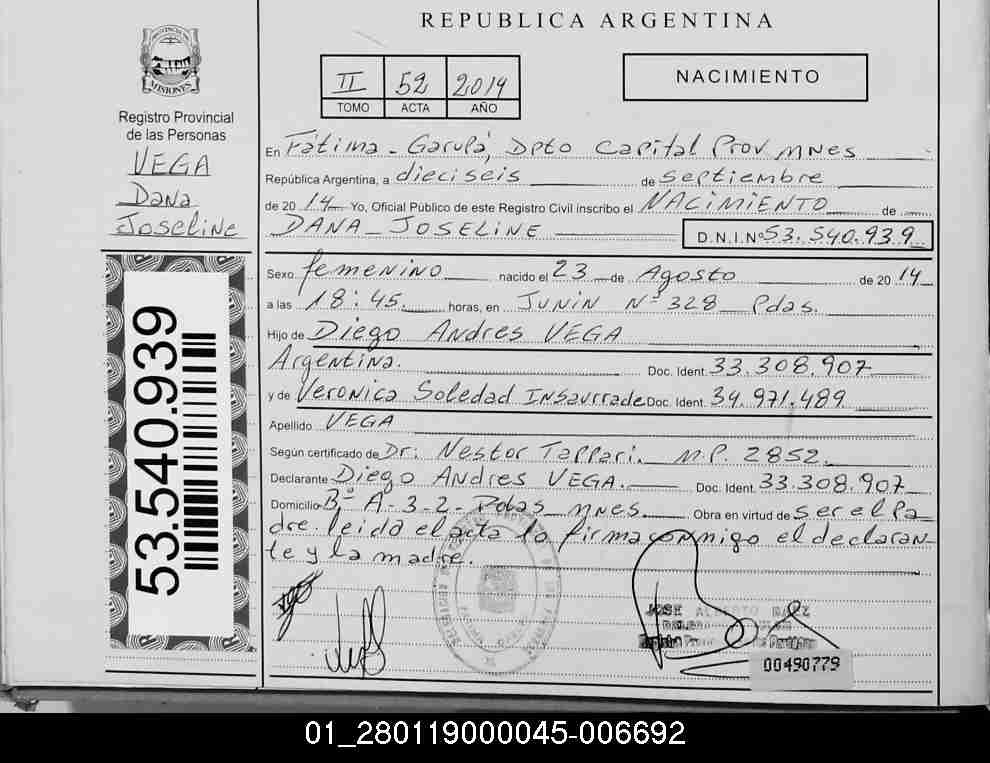 REPUBLICA ARGENTINA
PROVINCIA DE MISIONES
Registro Provincial
de las Personas
VEGA
Dana
Joseline
53.540.939
II 52 2014
TOMO ACTA AÑO
NACIMIENTO
En Fátima - Garupá, Dpto Capital Prov MNes
República Argentina, a dieciseis de Septiembre
de 2014 Yo, Oficial Público de este Registro Civil inscribo el NACIMIENTO de
DANA JOSELINE D.N.I.Nº 53.540.939
Sexo femenino nacido el 23 de Agosto de 2014
a las 18:45. horas, en JUNIN Nº 328 Pdas.
Hijo de Diego Andres VEGA
Argentina. Doc. Ident. 33.308.907
y de Veronica Soledad INSAURRADE Doc. Ident. 34.971.489
Apellido VEGA
Según certificado de Dr: Nestor Tappari. M.P. 2852.
Declarante Diego Andres VEGA. Doc. Ident. 33.308.907
Domicilio Bº A-3-2- Pdas MNes. Obra en virtud de Ser el Pa
dre. leida el acta la firma conmigo el declaran-
te y la madre.
JOSE ALBERTO BAEZ
00490779
01_280119000045-006692